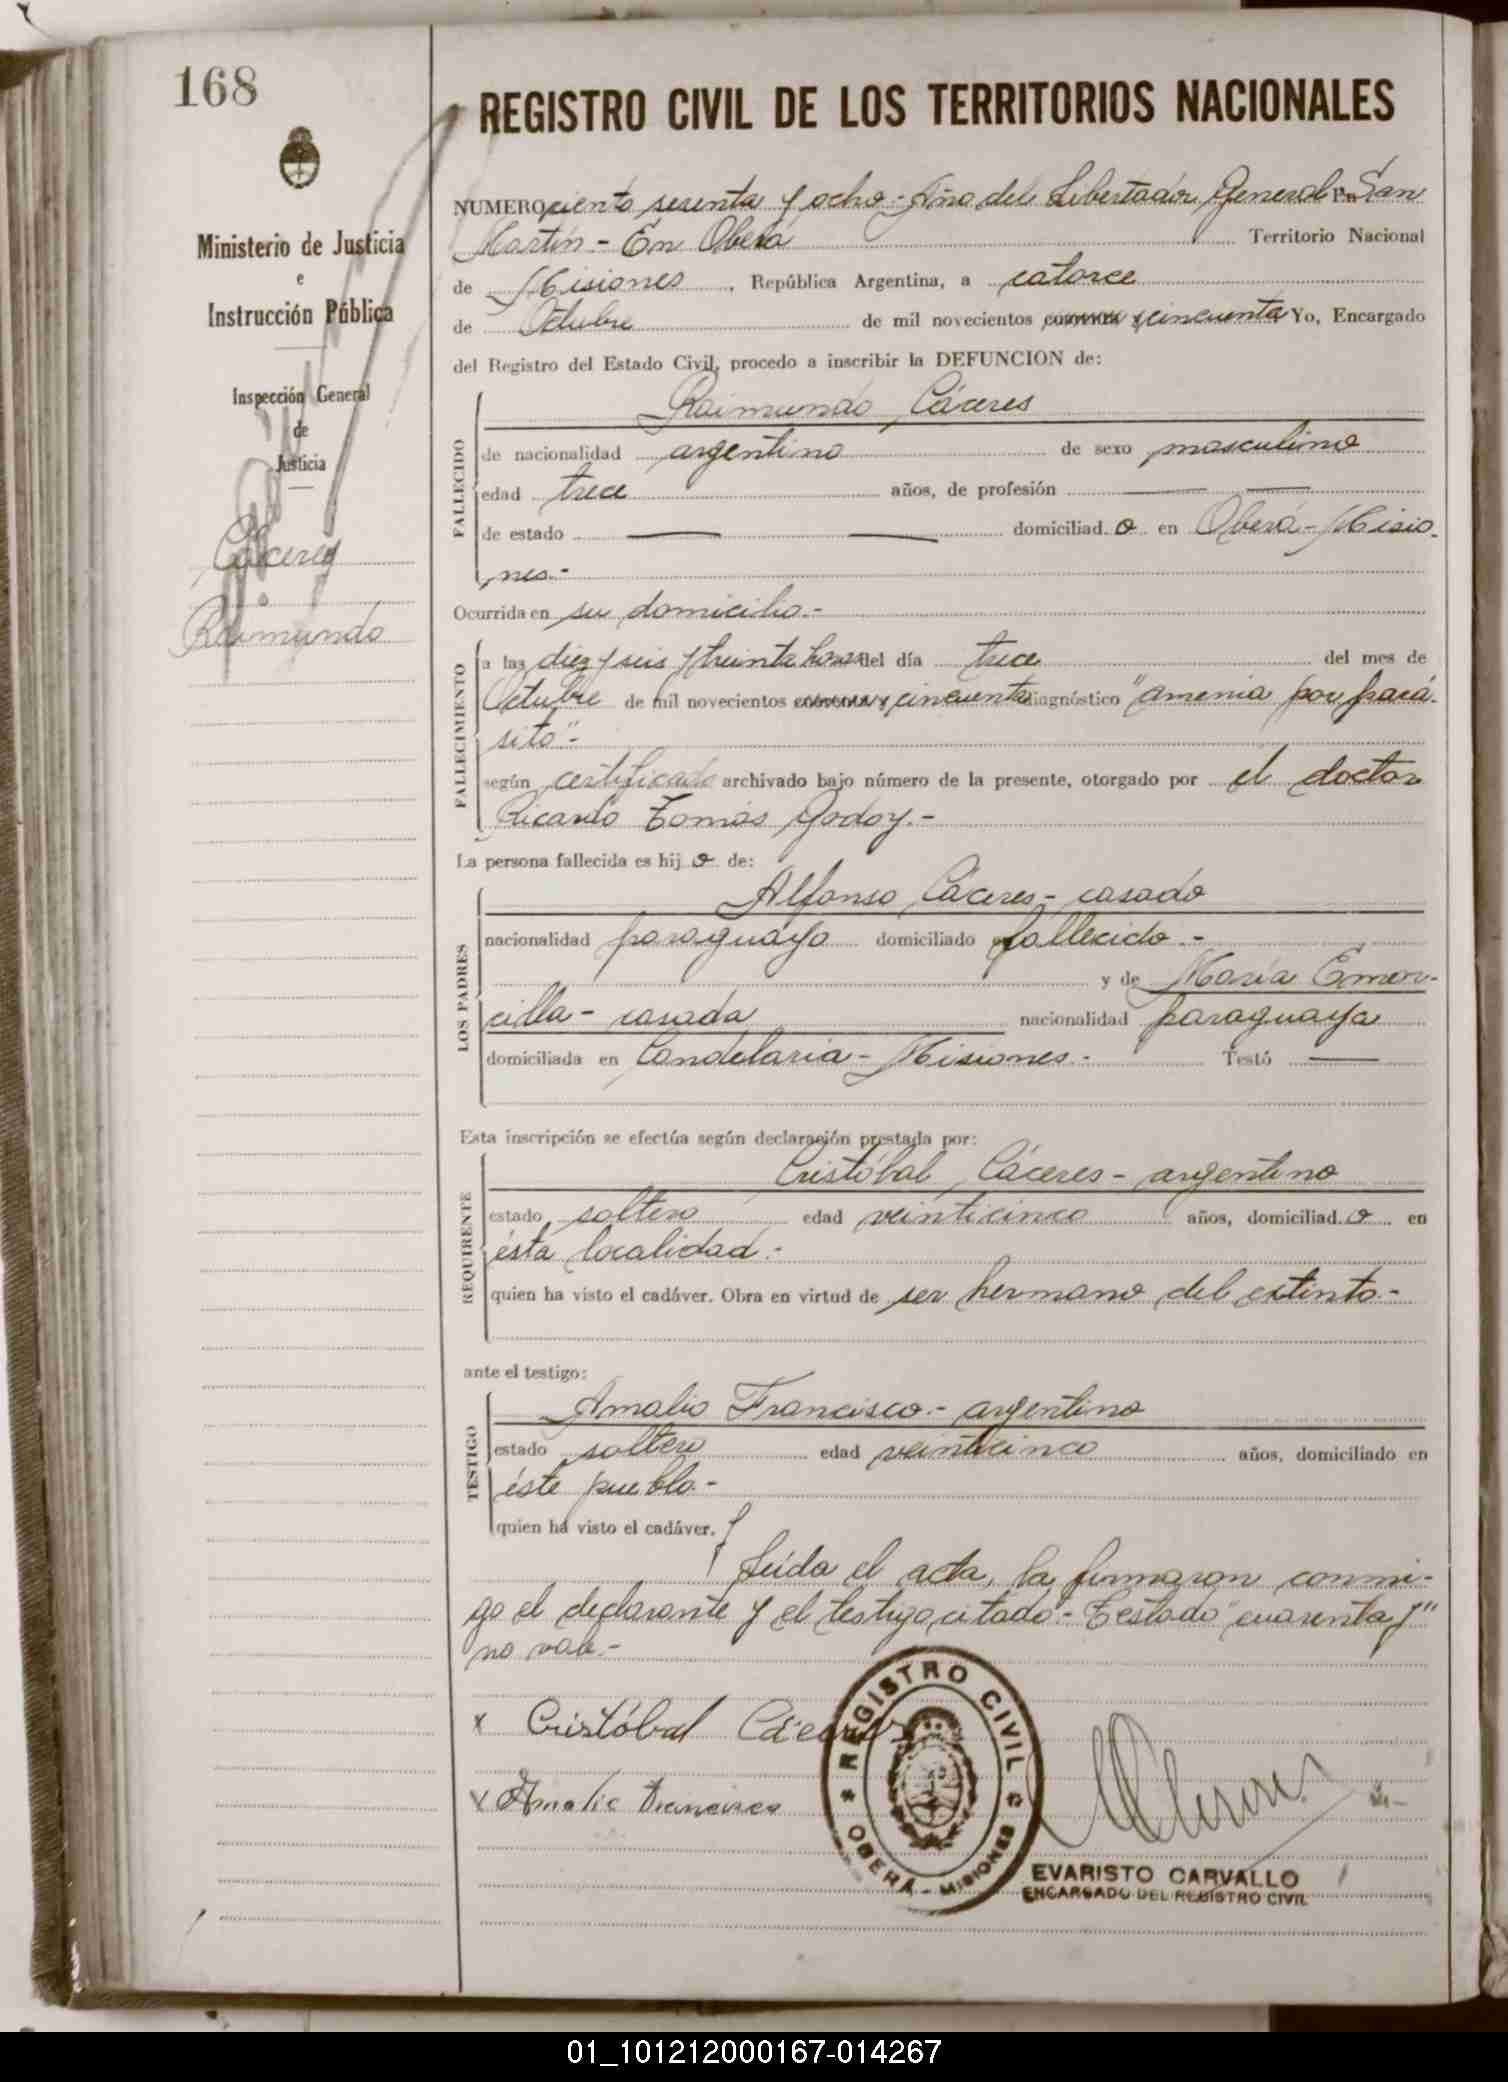 168
REGISTRO CIVIL DE LOS TERRITORIOS NACIONALES
Ministerio de Justicia
e
Instrucción Pública
Inspección General
de
Justicia
Cáceres
Raimundo
NUMERO ciento sesenta y ocho.- Año del Libertador General En San
Martín - En Oberá Territorio Nacional
de Misiones, República Argentina, a catorce
de Octubre de mil novecientos cuarenta y cincuenta Yo, Encargado
del Registro del Estado Civil, procedo a inscribir la DEFUNCION de:
FALLECIDO
Raimundo Cáceres
de nacionalidad argentino de sexo masculino
edad trece años, de profesión —— ——
de estado —— —— domiciliad.o en Oberá - Misio-
nes.-
Ocurrida en su domicilio.-
FALLECIMIENTO
a las diez y seis y treinta horas del día trece del mes de
Octubre de mil novecientos cuarenta y cincuenta diagnóstico "amenia por pará-
sito".-
según certificado archivado bajo número de la presente, otorgado por el doctor
Ricardo Tomás Godoy.-
La persona fallecida es hijo de:
LOS PADRES
Alfonso Cáceres - casado
nacionalidad paraguayo domiciliado fallecido.-
y de María Emer-
cilla - casada nacionalidad paraguaya
domiciliada en Candelaria - Misiones.- Testó ——
Esta inscripción se efectúa según declaración prestada por:
REQUIRENTE
Cristóbal Cáceres - argentino
estado soltero edad veinticinco años, domiciliad.o en
ésta localidad.-
quien ha visto el cadáver. Obra en virtud de ser hermano del extinto.-
ante el testigo:
TESTIGO
Amalio Francisco.- argentino
estado soltero edad veinticinco años, domiciliado en
éste pueblo.-
quien ha visto el cadáver.
Leida el acta, la firmaron conmi-
go el declarante y el testigo citado.- Testado "cuarenta y"
no vale.-
x Cristóbal Cáceres
x Amalio Francisco
REGISTRO CIVIL
OBERÁ - MISIONES
EVARISTO CARVALLO
ENCARGADO DEL REGISTRO CIVIL
01_101212000167-014267